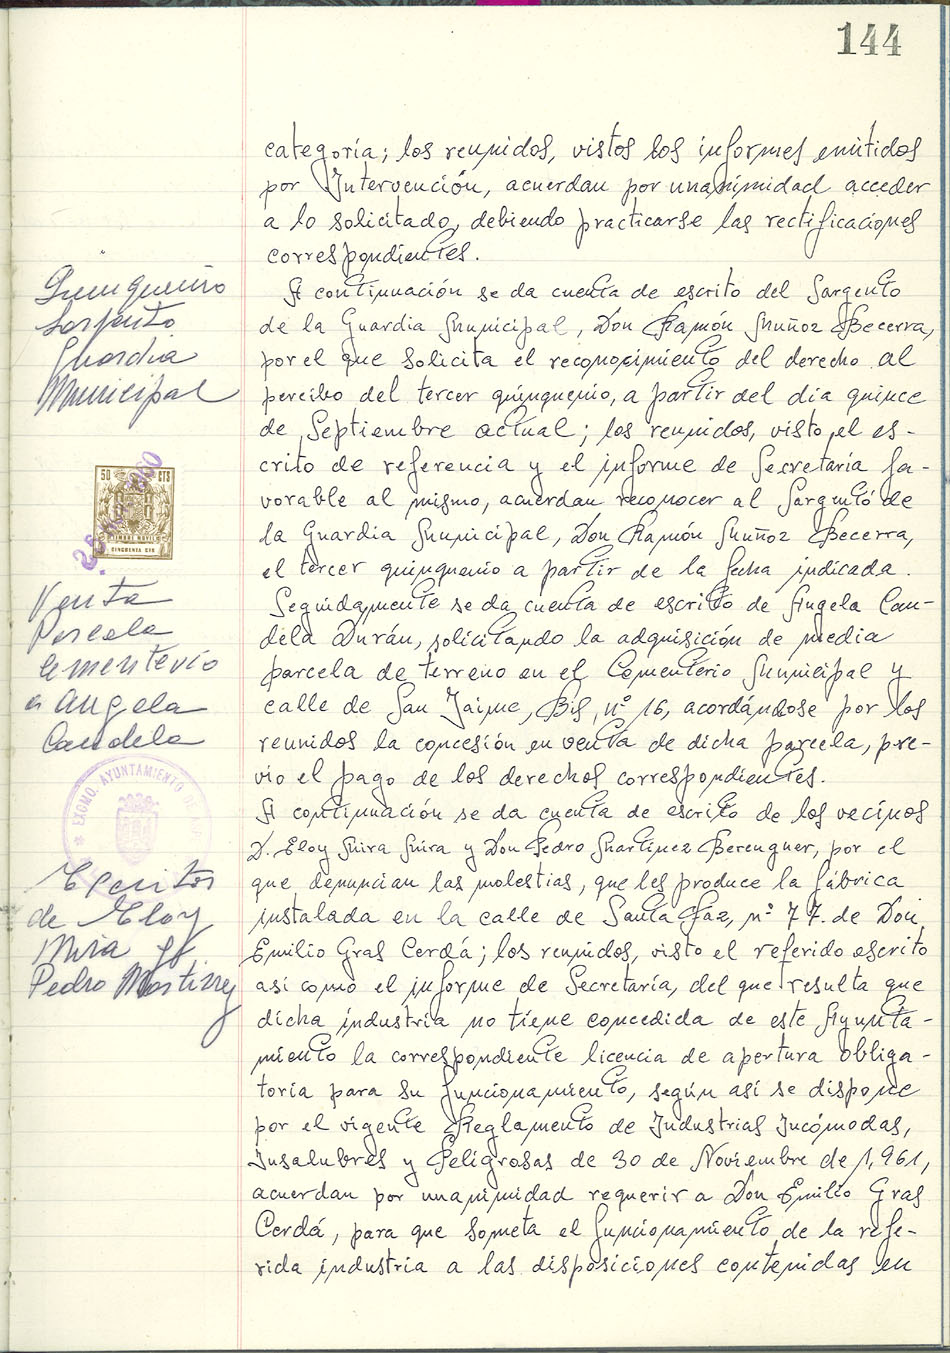 144
categoría; los reunidos, vistos los informes emitidos
por Intervención, acuerdan por unanimidad acceder
a lo solicitado, debiendo practicarse las rectificaciones
correspondientes.
Quinquenio
Sargento
Guardia
Municipal
A continuación se da cuenta de escrito del Sargento
de la Guardia Municipal, Don Ramón Muñoz Becerra,
por el que solicita el reconocimiento del derecho al
percibo del tercer quinquenio, a partir del día quince
de Septiembre actual; los reunidos, visto el es-
crito de referencia y el informe de Secretaría fa-
vorable al mismo, acuerdan reconocer al Sargento de
la Guardia Municipal, Don Ramón Muñoz Becerra,
el tercer quinquenio a partir de la fecha indicada.
50 CTS
TIMBRE MOVIL
CINCUENTA CTS
Venta
Parcela
Cementerio
a Angela
Candela
Seguidamente se da cuenta de escrito de Angela Can-
dela Durán, solicitando la adquisición de media
parcela de terreno en el Cementerio Municipal y
calle de San Jaime, Bis, nº 16, acordándose por los
reunidos la concesión en venta de dicha parcela, pre-
vio el pago de los derechos correspondientes.
EXCMO. AYUNTAMIENTO DE
Escritos
de Eloy
Mira y
Pedro Martinez
A continuación se da cuenta de escrito de los vecinos
D. Eloy Mira Mira y Don Pedro Martínez Berenguer, por el
que denuncian las molestias, que les produce la fábrica
instalada en la calle de Santa Faz, nº 77. de Don
Emilio Gras Cerdá; los reunidos, visto el referido escrito
así como el informe de Secretaría, del que resulta que
dicha industria no tiene concedida de este Ayunta-
miento la correspondiente licencia de apertura obliga-
toria para su funcionamiento, según así se dispone
por el vigente Reglamento de Industrias Incómodas,
Insalubres y Peligrosas de 30 de Noviembre de 1,961,
acuerdan por unanimidad requerir a Don Emilio Gras
Cerdá, para que someta el funcionamiento de la refe-
rida industria a las disposiciones contenidas en